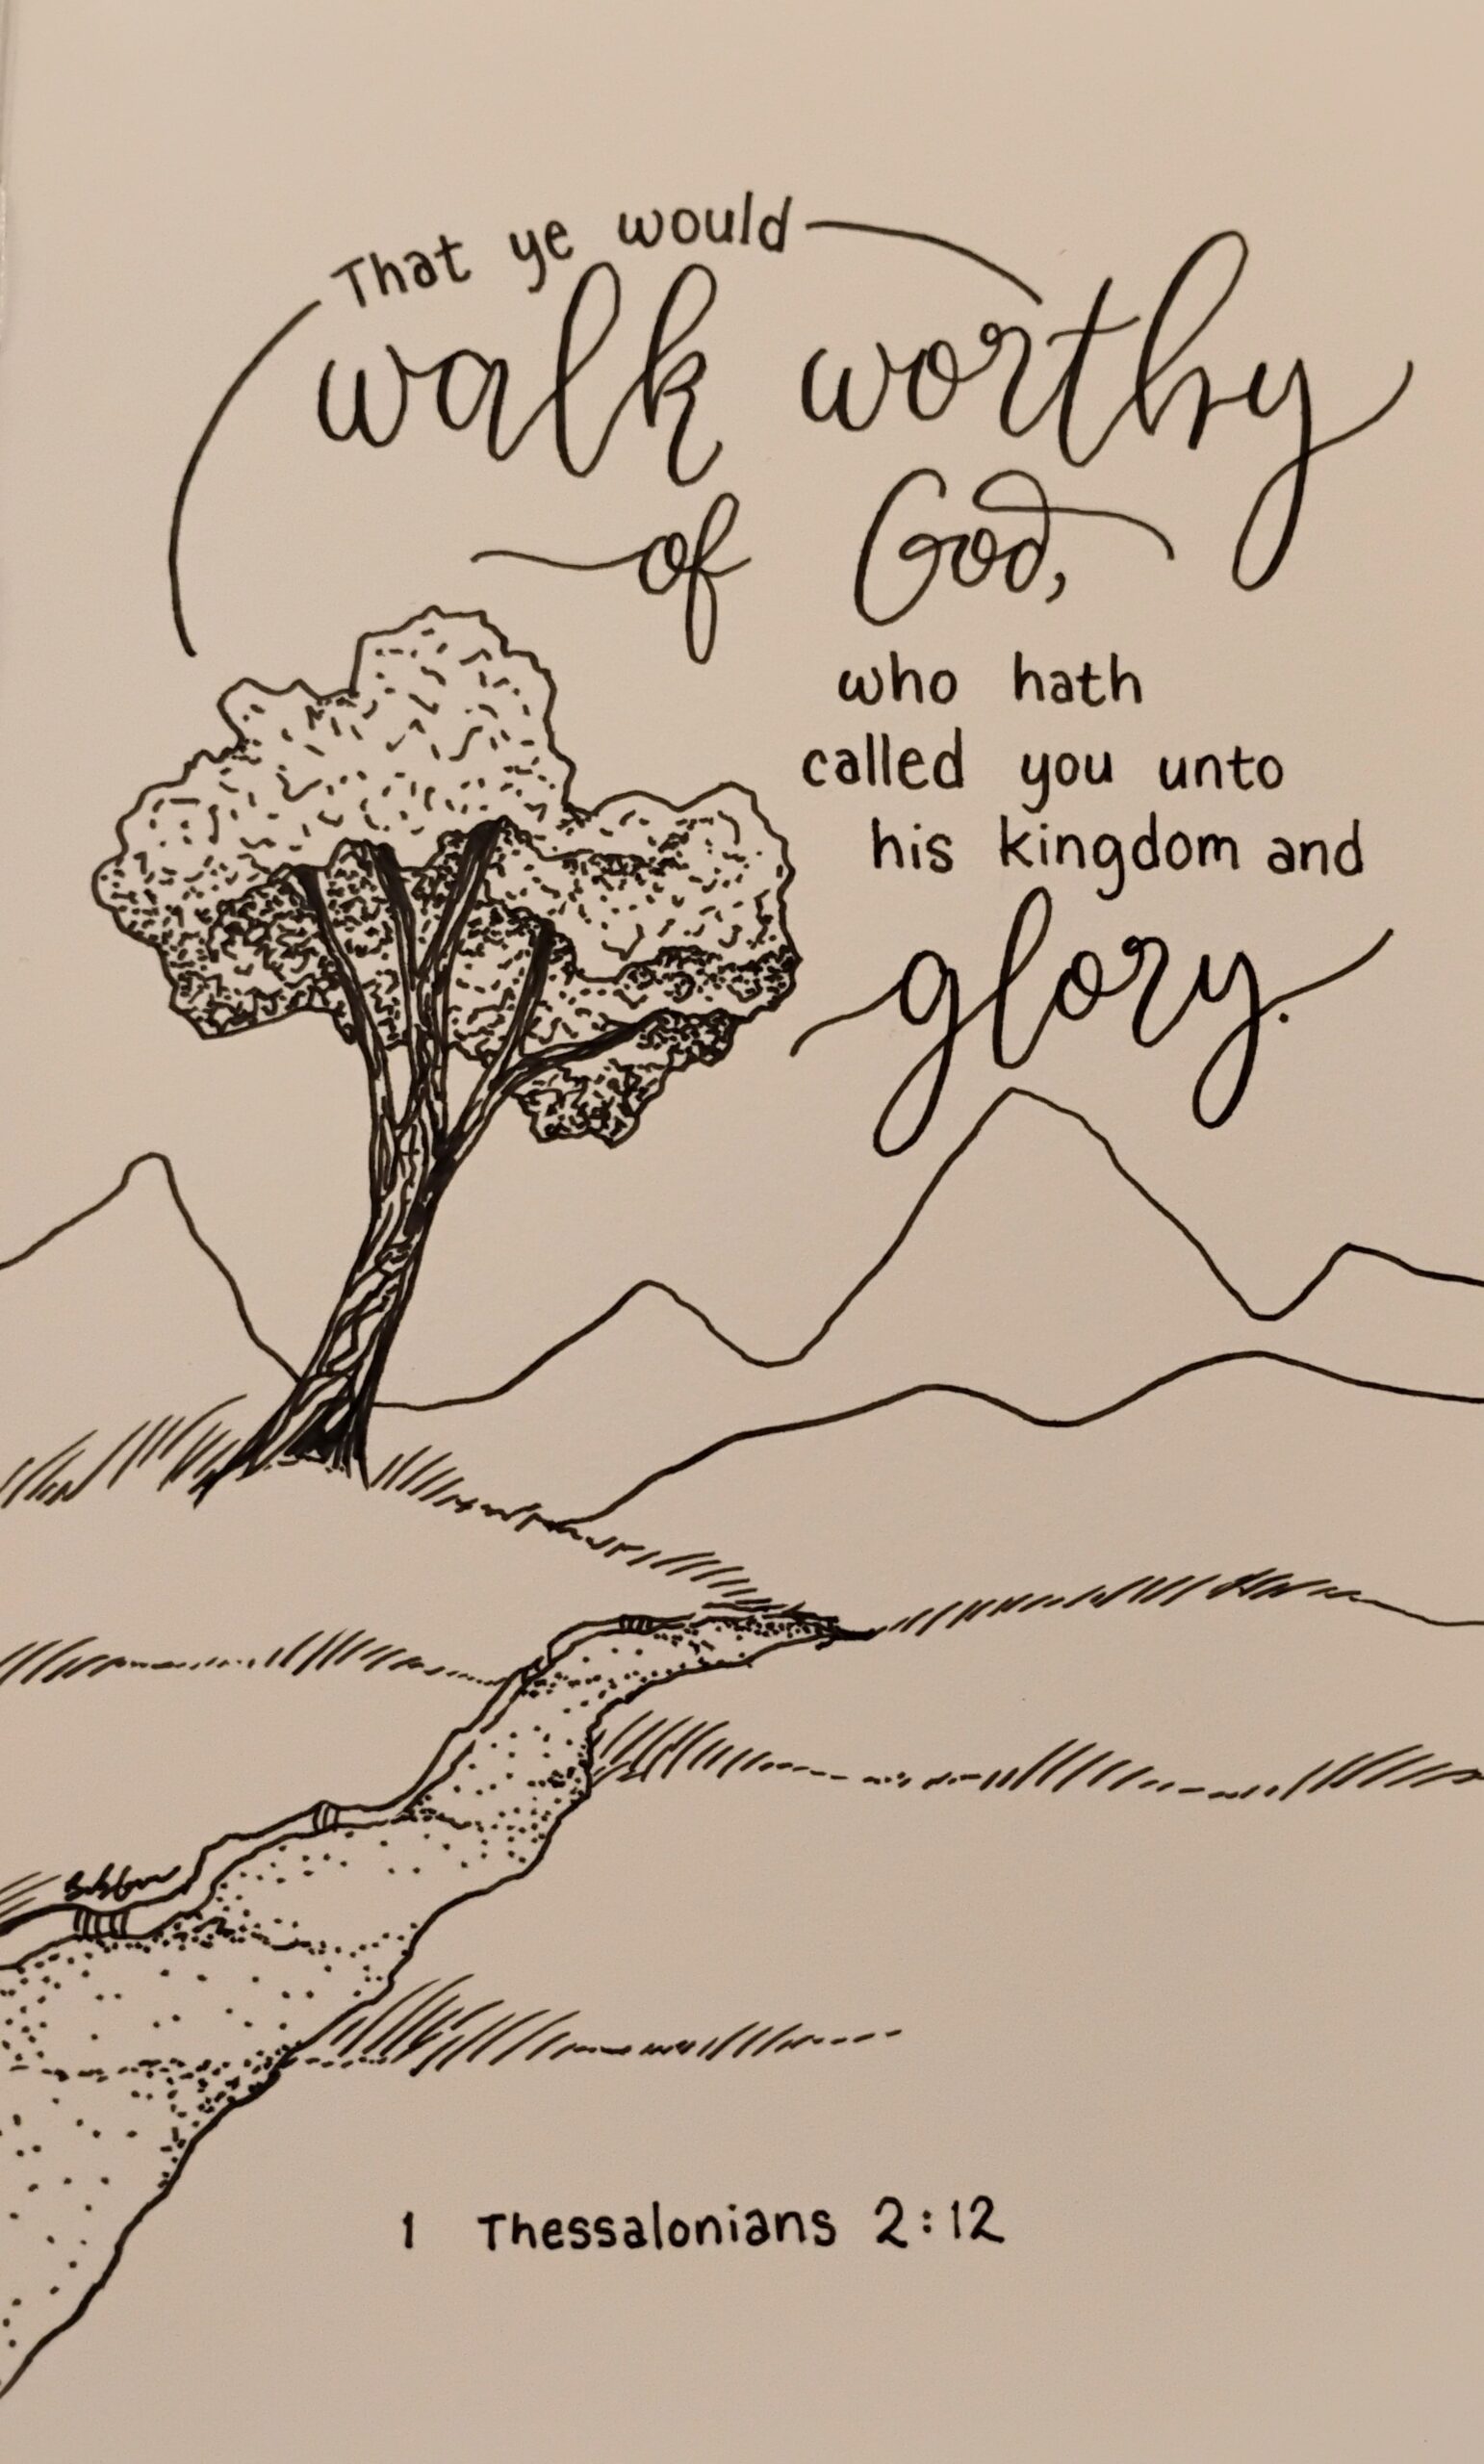 That ye would
walk worthy
of God,
who hath
called you unto
his kingdom and
glory.
1 Thessalonians 2:12